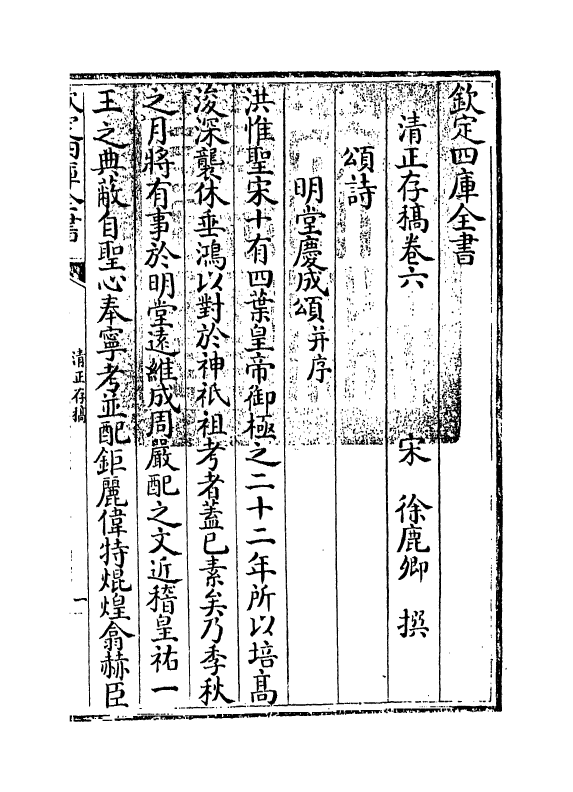 欽定四庫全書
清正存稿卷六
宋　徐鹿卿　撰
頌詩
明堂慶成頌并序
洪惟聖宋十有四葉皇帝御極之二十二年所以培髙
浚深襲休垂鴻以對於神祇祖考者蓋已素矣乃季秋
之月將有事於明堂遠維成周嚴配之文近稽皇祐一
王之典蔽自聖心奉寧考並配鉅麗偉特焜煌翕赫臣
欽定四庫全書
清正存稿
一